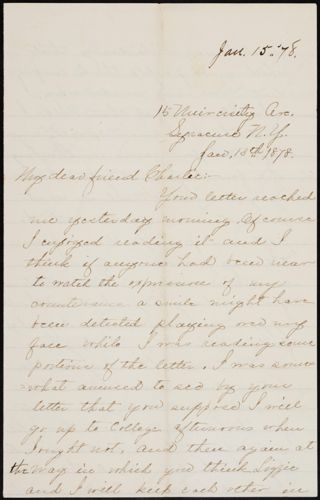 Jan. 15. '78.
15 University Av.
Syracuse N.Y.
Jan. 15th 1878.
My dear friend Charlie:-
Your letter reached
me yesterday morning. Of course
I enjoyed reading it and I
think if anyone had been near
to watch the expression of my
countenance a smile might have
been detected playing over my
face while I was reading some
portions of the letter. I was some-
what amused to see by your
letter that you supposed I will
go up to College afternoons when
I ought not, and then again at
the way in which you think Lizzie
and I will keep each other in